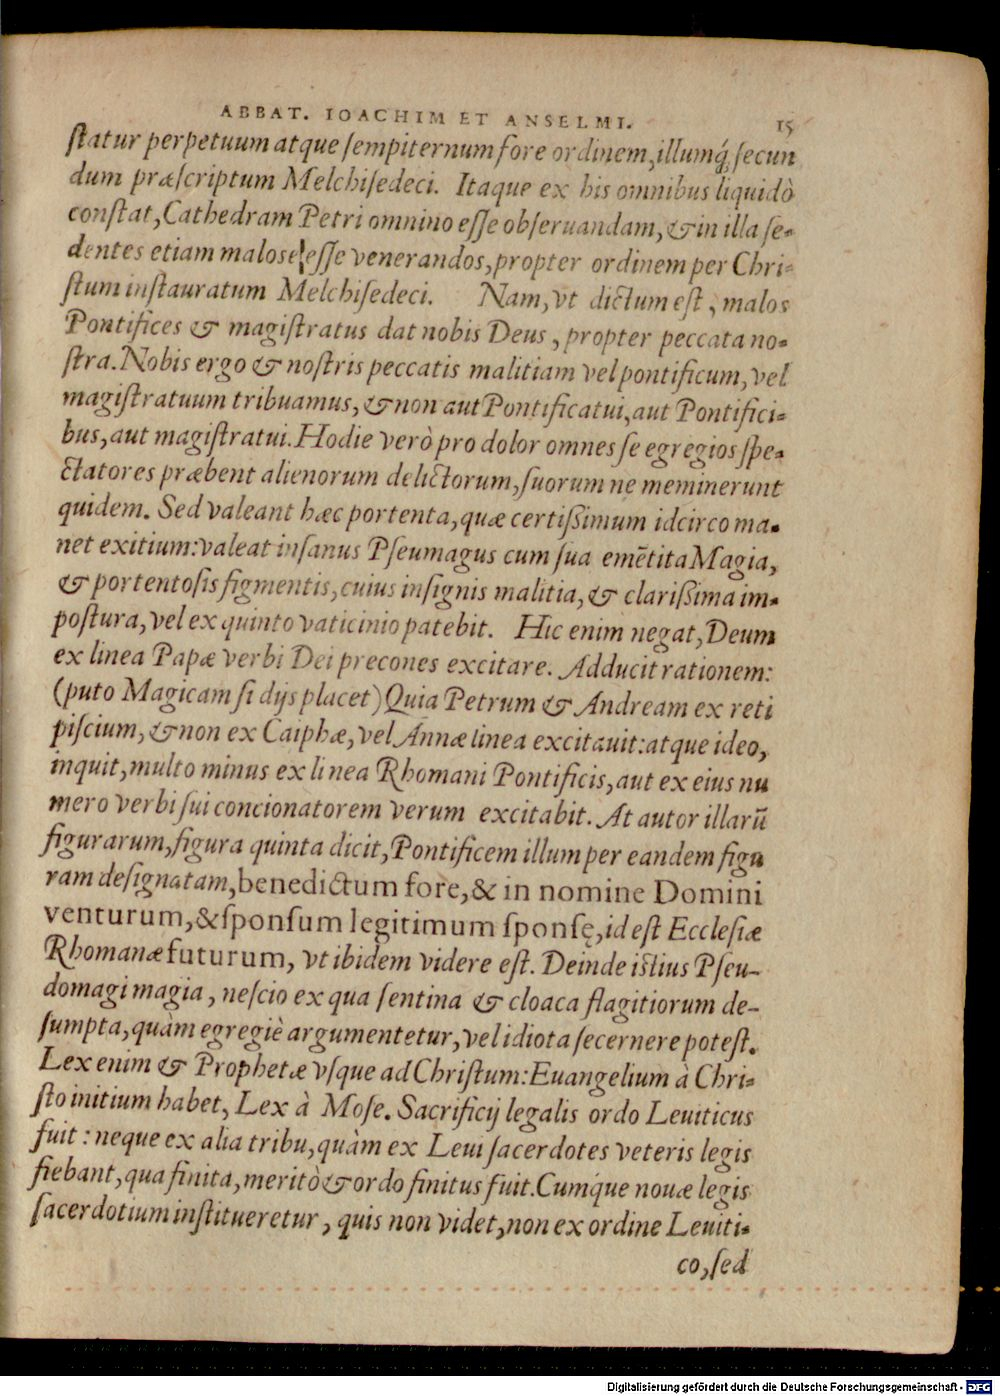 ABBAT. IOACHIM ET ANSELMI. 15
ſtatur perpetuum atque ſempiternum fore ordinem, illumq́; ſecun
dum præſcriptum Melchiſedeci. Itaque ex his omnibus liquidò
conſtat, Cathedram Petri omnino eſſe obſeruandam, & in illa ſe-
dentes etiam malos eſſe venerandos, propter ordinem per Chri-
ſtum inſtauratum Melchiſedeci. Nam, vt dictum eſt, malos
Pontifices & magiſtratus dat nobis Deus, propter peccata no-
ſtra. Nobis ergo & noſtris peccatis malitiam vel pontificum, vel
magiſtratuum tribuamus, & non aut Pontificatui, aut Pontifici-
bus, aut magiſtratui. Hodie verò pro dolor omnes ſe egregios ſpe-
ctatores præbent alienorum delictorum, ſuorum ne meminerunt
quidem. Sed valeant hæc portenta, quæ certiſsimum idcirco ma-
net exitium: valeat inſanus Pſeumagus cum ſua emẽtita Magia,
& portentoſis figmentis, cuius inſignis malitia, & clariſsima im-
poſtura, vel ex quinto vaticinio patebit. Hic enim negat, Deum
ex linea Papæ verbi Dei precones excitare. Adducit rationem:
(puto Magicam ſi dijs placet) Quia Petrum & Andream ex reti
piſcium, & non ex Caiphæ, vel Annæ linea excitauit: atque ideo,
inquit, multo minus ex linea Rhomani Pontificis, aut ex eius nu
mero verbi ſui concionatorem verum excitabit. At autor illarũ
figurarum, figura quinta dicit, Pontificem illum per eandem figu
ram deſignatam, benedictum fore, & in nomine Domini
venturum, & ſponſum legitimum ſponſę, id eſt Eccleſiæ
Rhomanæ futurum, vt ibidem videre eſt. Deinde iſtius Pſeu-
domagi magia, neſcio ex qua ſentina & cloaca flagitiorum de-
ſumpta, quàm egregiè argumentetur, vel idiota ſecernere poteſt.
Lex enim & Prophetæ vſque ad Chriſtum: Euangelium à Chri-
ſto initium habet, Lex à Moſe. Sacrificij legalis ordo Leuiticus
fuit: neque ex alia tribu, quàm ex Leui ſacerdotes veteris legis
fiebant, qua finita, meritò & ordo finitus fuit. Cumq́ue nouæ legis
ſacerdotium inſtitueretur, quis non videt, non ex ordine Leuiti-
co, ſed
Digitalisierung gefördert durch die Deutsche Forschungsgemeinschaft - DFG